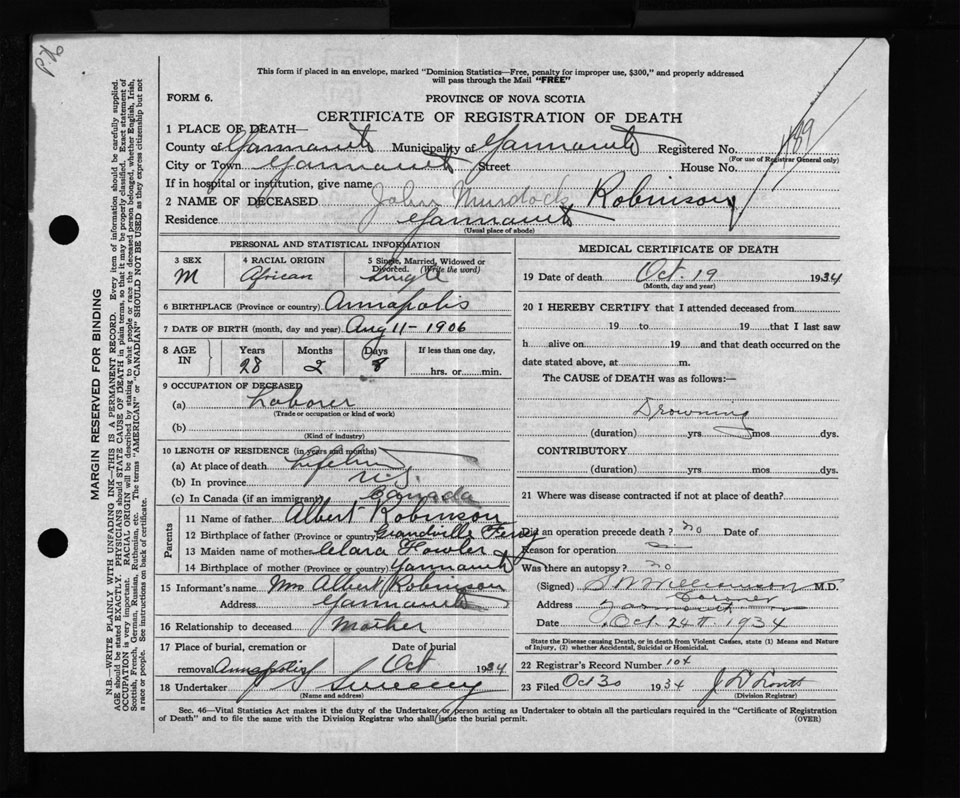 This form if placed in an envelope, marked "Dominion Statistics—Free, penalty for improper use, $300," and properly addressed
will pass through the Mail "FREE"
FORM 6.
PROVINCE OF NOVA SCOTIA
CERTIFICATE OF REGISTRATION OF DEATH
1 PLACE OF DEATH—
County of Yarmouth Municipality of Yarmouth Registered No. 489
(For use of Registrar General only)
City or Town Yarmouth Street House No.
If in hospital or institution, give name
2 NAME OF DECEASED John Murdock Robinson
Residence Yarmouth
(Usual place of abode)
PERSONAL AND STATISTICAL INFORMATION
3 SEX M
4 RACIAL ORIGIN African
5 Single, Married, Widowed or Divorced. (Write the word) Single
6 BIRTHPLACE (Province or country) Annapolis
7 DATE OF BIRTH (month, day and year) Aug 11 - 1906
8 AGE IN Years 28 Months 2 Days 8 If less than one day, hrs. or min.
9 OCCUPATION OF DECEASED
(a) Laborer
(Trade or occupation or kind of work)
(b)
(Kind of industry)
10 LENGTH OF RESIDENCE (in years and months)
(a) At place of death Lifetime
(b) In province N.S.
(c) In Canada (if an immigrant) Canada
Parents
11 Name of father Albert Robinson
12 Birthplace of father (Province or country) Grandville Ferry
13 Maiden name of mother Clara Fowler
14 Birthplace of mother (Province or country) Yarmouth
15 Informant's name Mrs Albert Robinson
Address Yarmouth
16 Relationship to deceased Mother
17 Place of burial, cremation or removal Annapolis Date of burial Oct 1934
18 Undertaker Sweeny
(Name and address)
MEDICAL CERTIFICATE OF DEATH
19 Date of death Oct. 19 1934
(Month, day and year)
20 I HEREBY CERTIFY that I attended deceased from
19 to 19 that I last saw
h alive on 19 and that death occurred on the
date stated above, at m.
The CAUSE of DEATH was as follows:—
Drowning
(duration) yrs mos dys.
CONTRIBUTORY
(duration) yrs. mos. dys.
21 Where was disease contracted if not at place of death?
Did an operation precede death? no Date of
Reason for operation
Was there an autopsy? no
(Signed) Williamson M.D.
Coroner
Address Yarmouth
Date Oct 24th 1934
State the Disease causing Death, or in death from Violent Causes, state (1) Means and Nature
of Injury, (2) whether Accidental, Suicidal or Homicidal.
22 Registrar's Record Number 104
23 Filed Oct 30 1934
(Division Registrar)
Sec. 46—Vital Statistics Act makes it the duty of the Undertaker or person acting as Undertaker to obtain all the particulars required in the "Certificate of Registration
of Death" and to file the same with the Division Registrar who shall issue the burial permit.
(OVER)
MARGIN RESERVED FOR BINDING
N.B.—WRITE PLAINLY WITH UNFADING INK—THIS IS A PERMANENT RECORD. Every item of information should be carefully supplied.
AGE should be stated EXACTLY. PHYSICIANS should STATE CAUSE OF DEATH in plain terms, so that it may be properly classified. Exact statement of
OCCUPATION is very important. RACIAL ORIGIN will be described by stating to what people or race the deceased person belonged, whether English, Irish,
Scottish, French, German, Russian, Ruthenian, etc. The terms "AMERICAN" or "CANADIAN" SHOULD NOT BE USED as they express citizenship but not
a race or people. See instructions on back of certificate.